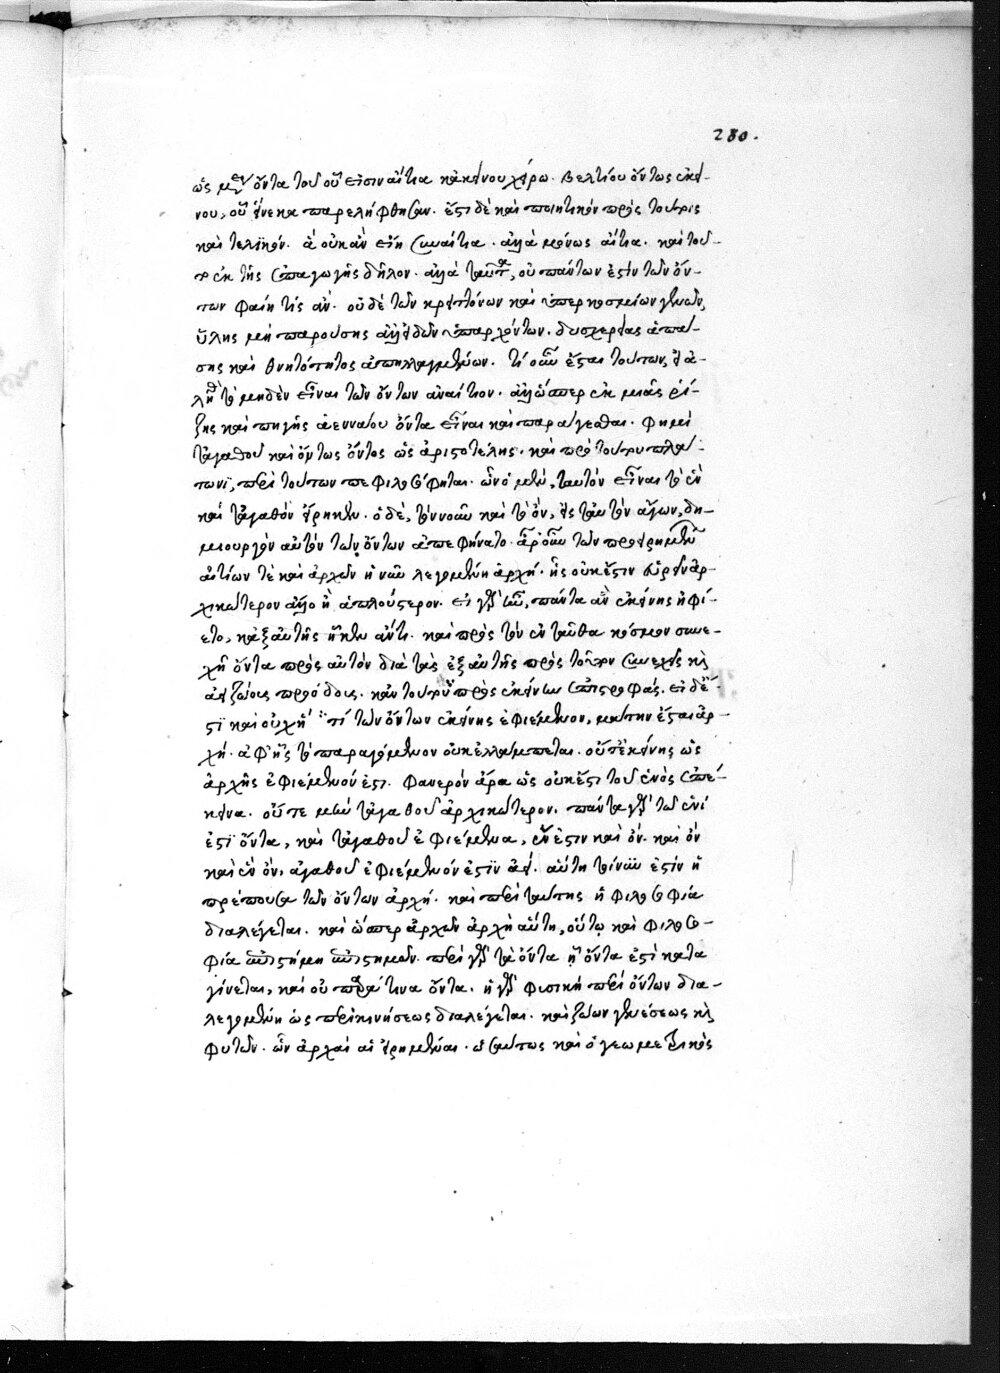 280.
ὡς μὲν ὄντα τοῦ οὗ εἰσιν αἴτια κἀκείνου χείρω. βελτίου ὄντως ἐκεί-
νου, οὗ ἕνεκα παρελήφθησαν. ἔστι δὲ καὶ ποιητικὸν πρὸς τούτοις
καὶ τελικόν. ἃ οὐκ ἂν εἴη συναίτια. ἀλλὰ μόνως αἴτια. καὶ τοῦ-
το ἐκ τῆς ἐπαγωγῆς δῆλον. ἀλλὰ ταῦτα, οὐ πάντων ἐστὶν τῶν ὄν-
των φαίη τίς ἄν. οὐδὲ τῶν κρειττόνων καὶ ὑπερκοσμίων γενῶν,
ὕλης μὴ παρούσης ἀειδῶν ὑπαρχόντων. δυσχερείας ἁπά-
σης καὶ θνητότητος ἀπηλλαγμένων. τί οὖν ἔσται τούτων, εἰ ἀ-
ληθὲς τὸ μηδὲν εἶναι τῶν ὄντων ἀναίτιον. ἀλλ' ὥσπερ ἐκ μιᾶς ῥί-
ζης καὶ πηγῆς ἀεννάου ὄντα εἶναι καὶ παράγεσθαι. φημὶ
τἀγαθοῦ καὶ ὄντως ὄντος ὡς ἀριστοτέλης. καὶ πρὸ τούτου πλά-
τωνι, περὶ τούτων πεφιλοσόφηται. ὧν ὁ μὲν, ταυτὸν εἶναι τὸ ἓν
καὶ τἀγαθὸν εἴρηκεν. ὁ δὲ, τὸν νοῦν καὶ τὸ ὂν, εἰς ταυτὸν ἄγων, δη-
μιουργὸν αὐτὸν τῶν ὄντων ἀπεφήνατο. ἆρ' οὖν τῶν προειρημένων
αἰτίων τὲ καὶ ἀρχῶν ἡ νῦν λεγομένη ἀρχή. ἧς οὐκ ἔστιν εὑρεῖν ἀρ-
χικώτερον ἄλλο ἢ ἁπλούστερον. εἰ γὰρ ἦν, πάντα ἂν ἐκείνης ἠφί-
ετο, κἀξ αὐτῆς ἧκεν ἄν τι. καὶ πρὸς τὸν ἐνταῦθα κόσμον συνε-
χῆ ὄντα πρὸς αὐτὸν διὰ τὰς ἐξ αὐτῆς πρὸς τοῦτον συνεχεῖς καὶ
ἀειζώοις προόδοις. κἀν τούτου πρὸς ἐκείνων ἐπιστροφάς. εἰ δέ
τι καὶ οὐχὶ τί τῶν ὄντων ἐκείνης ἐφιέμενον, μάτην ἔσται ἀρ-
χή. ἀφ' ἧς τὸ παραγόμενον οὐκ ἐλλάμπεται. οὔτ' ἐκείνης ὡς
ἀρχῆς ἐφιέμενόν ἐστι. φανερὸν ἄρα ὡς οὐκ ἔστι τοῦ ἑνὸς ἐπέ-
κεινα. οὔτε μὴν τἀγαθοῦ ἀρχικώτερον. πάντα γὰρ τῷ ἑνί
ἐστι ὄντα, καὶ τἀγαθοῦ ἐφιέμενα, ἕν ἐστιν καὶ ὄν. καὶ ὂν
καὶ ἓν ὂν, ἀγαθοῦ ἐφιέμενόν ἐστιν ἀεί. αὕτη τοίνυν ἐστὶν ἡ
πρέπουσα τῶν ὄντων ἀρχή. καὶ περὶ ταύτης ἡ φιλοσοφία
διαλέγεται. καὶ ὥσπερ ἀρχῶν ἀρχὴ αὕτη, οὕτω καὶ φιλοσο-
φία ἐπιστήμη ἐπιστημῶν. περὶ γὰρ τὰ ὄντα ᾗ ὄντα ἐστὶ κατα
γίνεται, καὶ οὐ πρός τινα ὄντα. ἡ γὰρ φισικὴ περὶ ὄντων δια-
λεγομένη ὡς περὶ κινήσεως διαλέγεται. καὶ ζώων γενέσεως καὶ
φυτῶν. ὧν ἀρχαὶ αἱ εἰρημέναι. ὡσαύτως καὶ ὁ γεωμετρικὸς